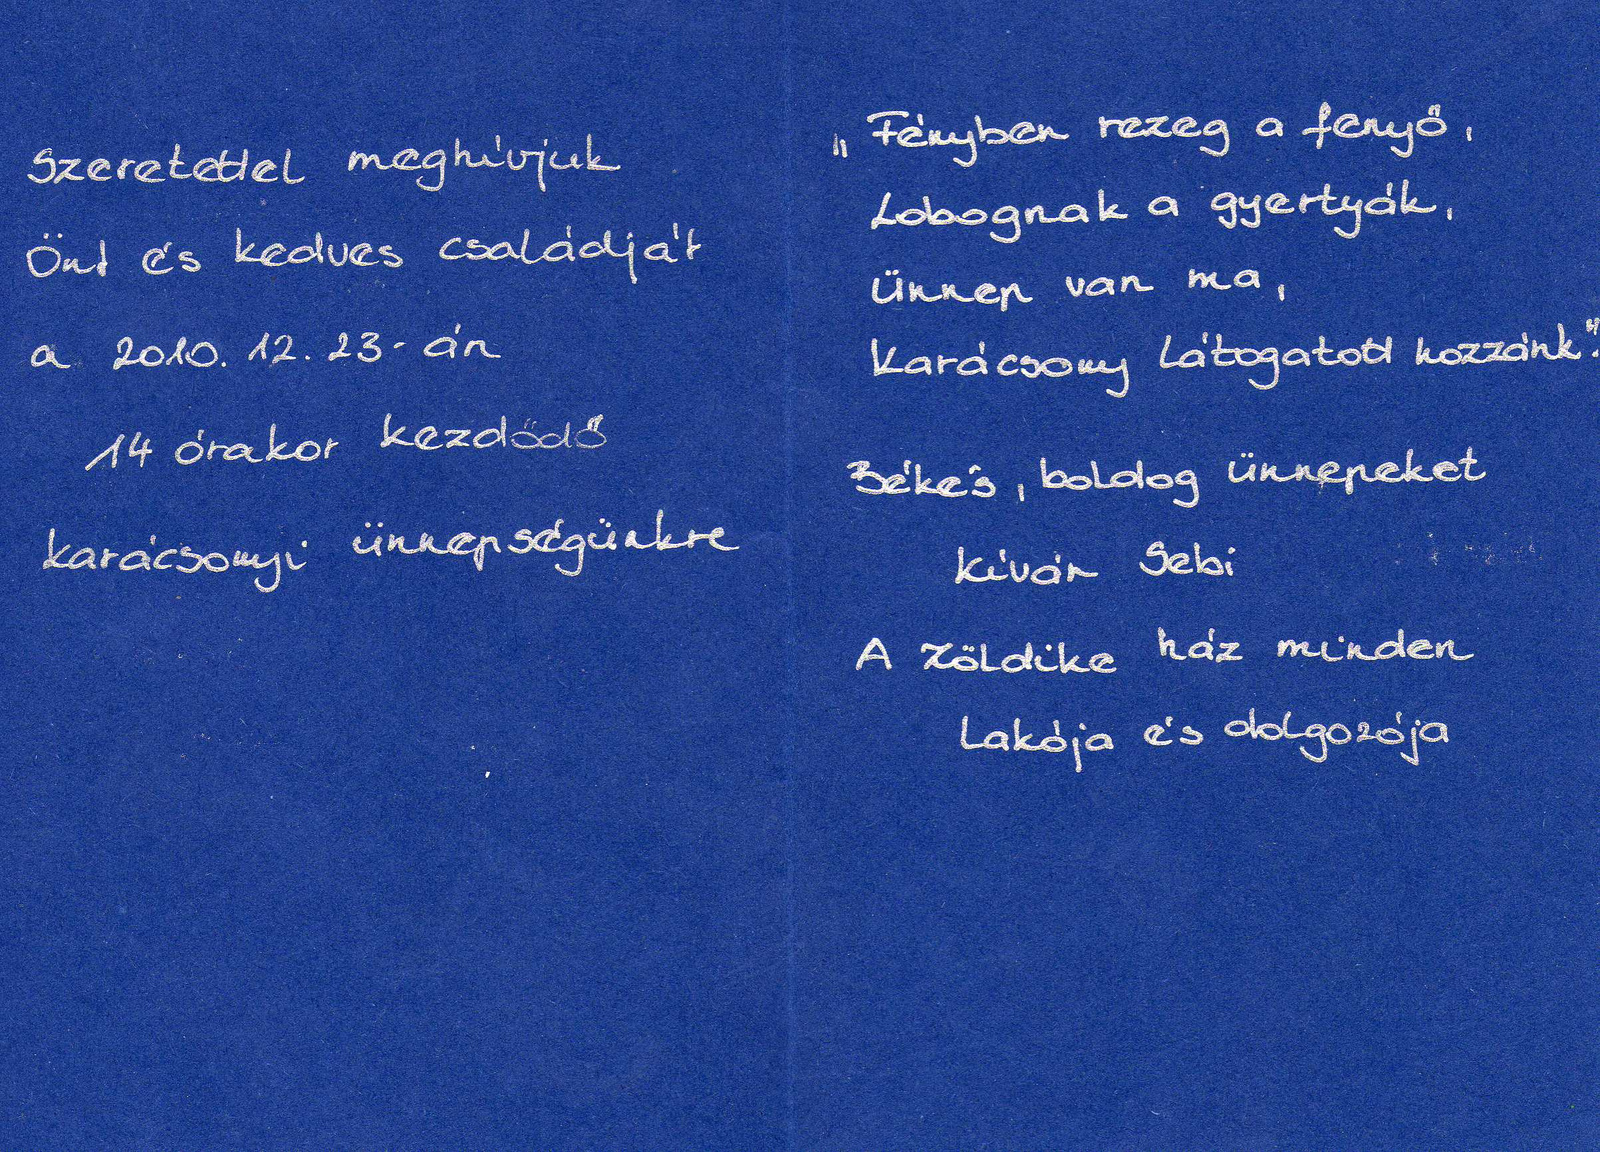 Szeretettel meghívjuk
Önt és kedves családját
a 2010. 12. 23-án
14 órakor kezdődő
karácsonyi ünnepségünkre
„Fényben rezeg a fenyő,
Lobognak a gyertyák,
ünnep van ma,
Karácsony Látogatott hozzánk".
Békés, boldog ünnepeket
kíván Sebi
A Zöldike ház minden
Lakója és dolgozója